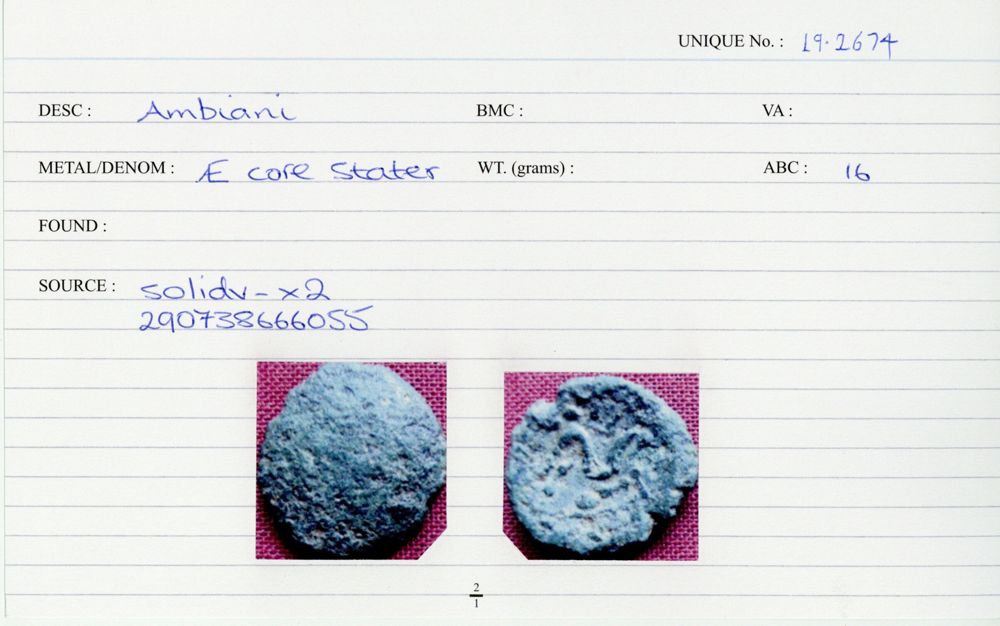 UNIQUE No. : 19.2674
DESC : Ambiani BMC : VA :
METAL/DENOM : Æ core stater WT. (grams) : ABC : 16
FOUND :
SOURCE : solidv - x2
290738666055
2
1